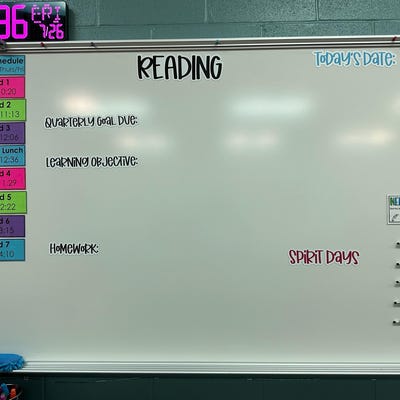 36 FRI
7/26
READING
TODAY'S DATE:
QUARTERLY GOAL DUE:
LEARNING OBJECTIVE:
HOMEWORK:
SPIRIT DAYS
d 1
0:20
d 2
11:13
d 3
12:06
Lunch
12:36
d 4
1:29
d 5
2:22
d 6
3:15
d 7
4:10